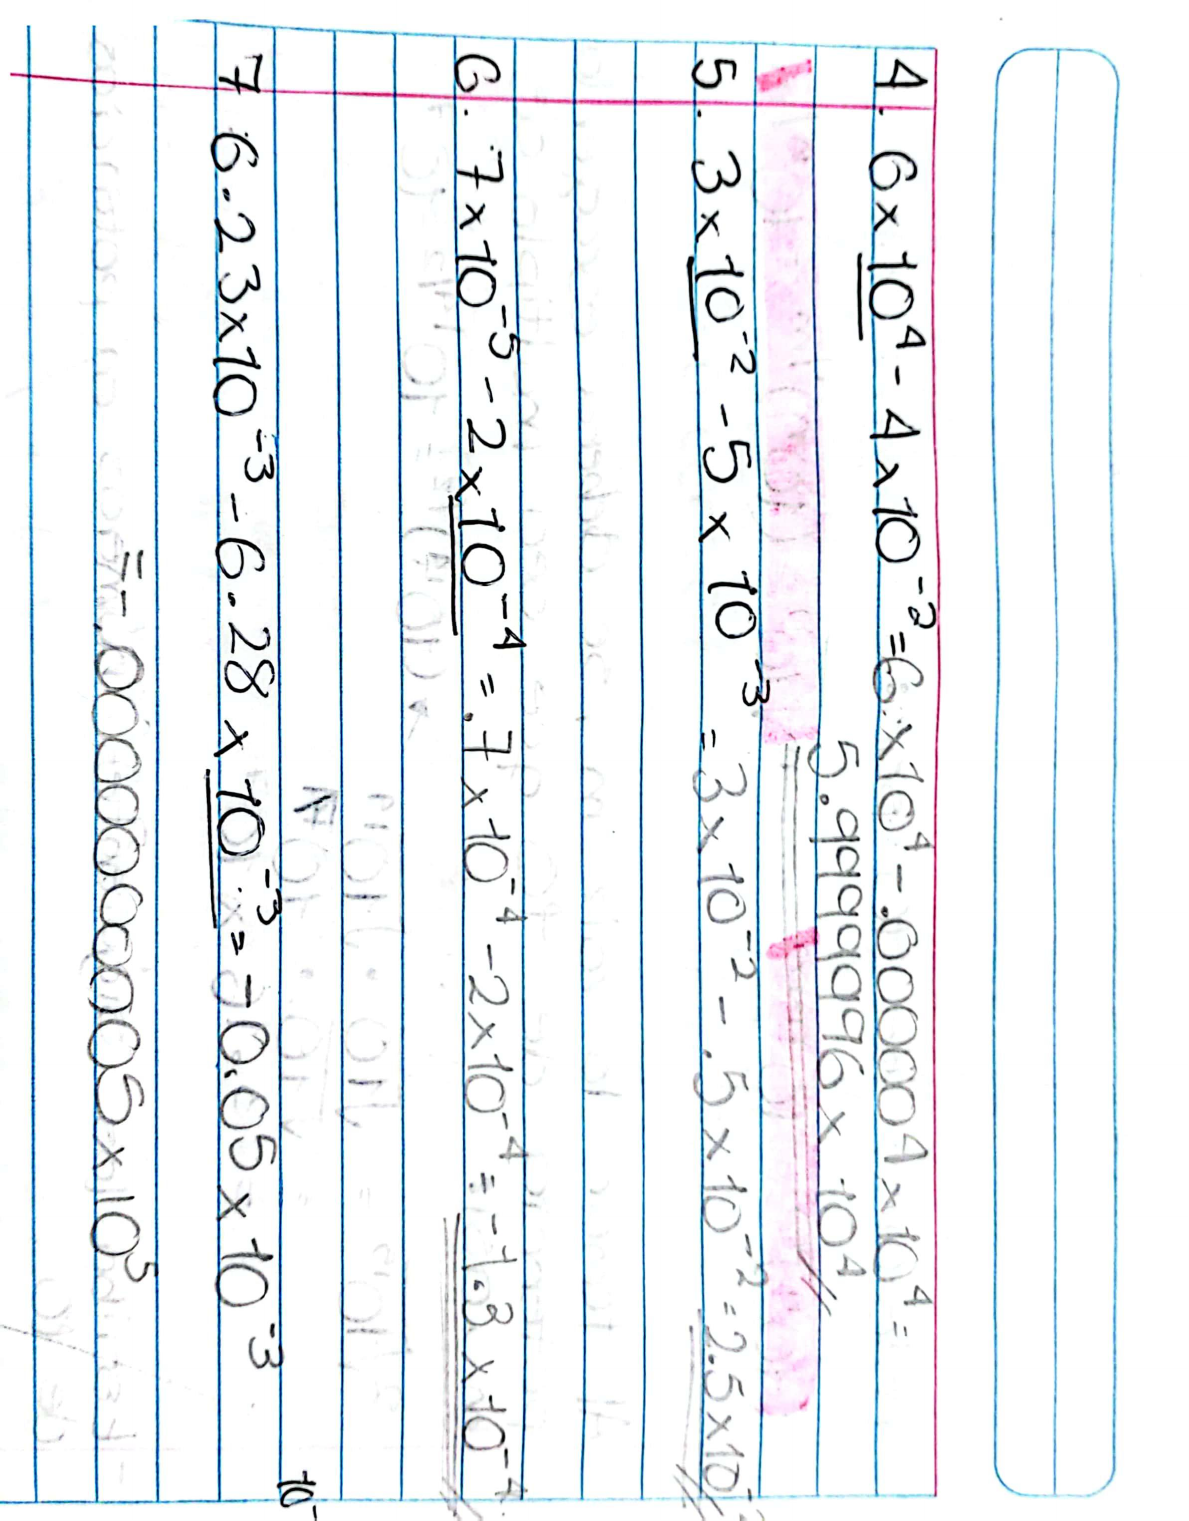 4. 6x10⁴ - 4x10⁻² = 6x10⁴ - .000004x10⁴ =
5.9999996 x 10⁴
5. 3x10⁻² - 5 x 10⁻³ = 3x10⁻² - .5x10⁻² = 2.5x10⁻²
6. 7x10⁻⁵ - 2x10⁻⁴ = .7x10⁻⁴ - 2x10⁻⁴ = -1.3 x 10⁻⁴
10⁻
7 6.23x10⁻³ - 6.28 x 10⁻³ = -0.05 x 10⁻³
= -.0000000005 x 10⁵